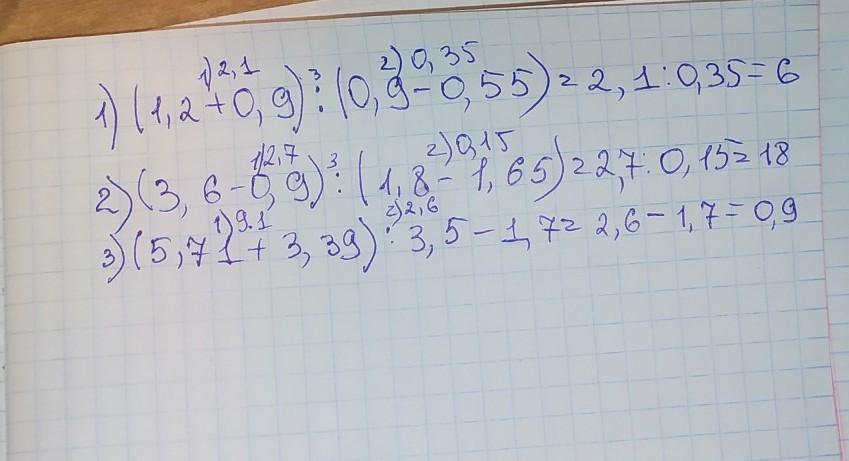 1)2,1 3 2)0,35
1) (1,2+0,9) : (0,9-0,55) = 2,1:0,35 = 6
1)2,7 3 2)0,15
2) (3,6-0,9) : (1,8-1,65) = 2,7:0,15 = 18
1)9.1 2)2,6
3) (5,71+3,39) : 3,5-1,7 = 2,6-1,7 = 0,9